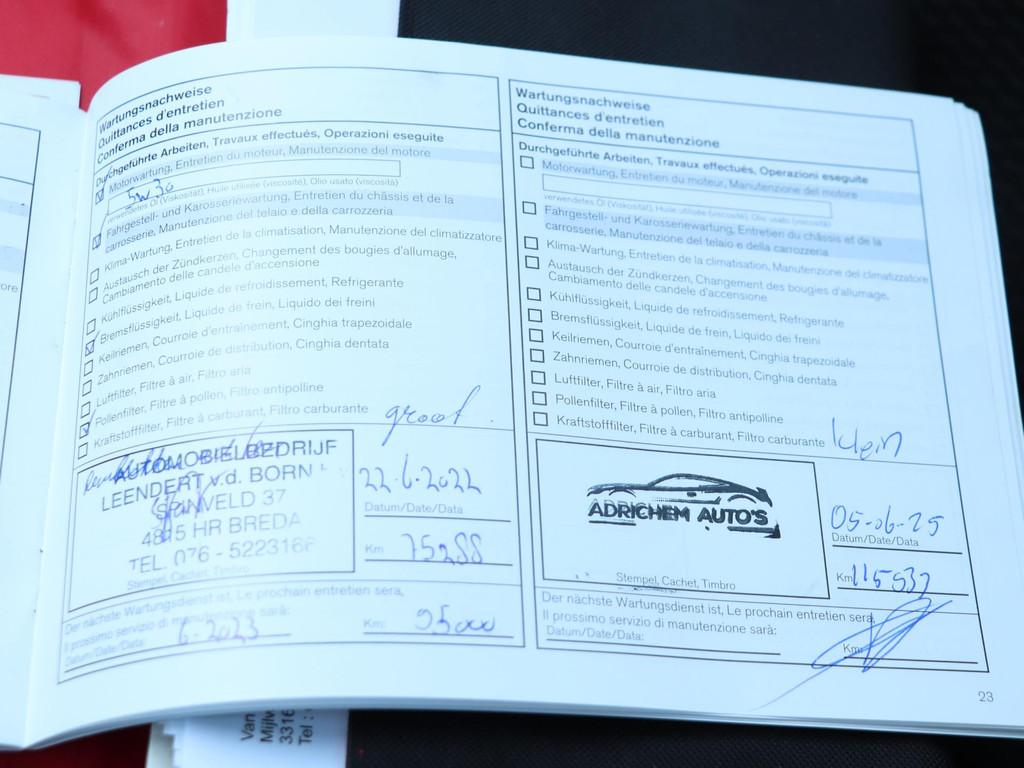 ore
Wartungsnachweise
Quittances d'entretien
Conferma della manutenzione
Durchgeführte Arbeiten, Travaux effectués, Operazioni eseguite
Motorwartung, Entretien du moteur, Manutenzione del motore
5W30
verwendetes Öl (Viskosität), Huile utilisée (viscosité), Olio usato (viscosità)
Fahrgestell- und Karosseriewartung, Entretien du châssis et de la
carrosserie, Manutenzione del telaio e della carrozzeria
Klima-Wartung, Entretien de la climatisation, Manutenzione del climatizzatore
Austausch der Zündkerzen, Changement des bougies d'allumage,
Cambiamento delle candele d'accensione
Kühlflüssigkeit, Liquide de refroidissement, Refrigerante
Bremsflüssigkeit, Liquide de frein, Liquido dei freini
Keilriemen, Courroie d'entraînement, Cinghia trapezoidale
Zahnriemen, Courroie de distribution, Cinghia dentata
Luftfilter, Filtre à air, Filtro aria
Pollenfilter, Filtre à pollen, Filtro antipolline
Kraftstofffilter, Filtre à carburant, Filtro carburante
groot.
AUTOMOBIELBEDRIJF
LEENDERT v.d. BORN
SPINVELD 37
4815 HR BREDA
TEL. 076 - 5223166
Stempel, Cachet, Timbro
22-6-2022
Datum/Date/Data
Km: 75288
Der nächste Wartungsdienst ist, Le prochain entretien sera,
Il prossimo servizio di manutenzione sarà:
Datum/Date/Data: 6-2023 Km: 95000
Wartungsnachweise
Quittances d'entretien
Conferma della manutenzione
Durchgeführte Arbeiten, Travaux effectués, Operazioni eseguite
Motorwartung, Entretien du moteur, Manutenzione del motore
verwendetes Öl (Viskosität), Huile utilisée (viscosité), Olio usato (viscosità)
Fahrgestell- und Karosseriewartung, Entretien du châssis et de la
carrosserie, Manutenzione del telaio e della carrozzeria
Klima-Wartung, Entretien de la climatisation, Manutenzione del climatizzatore
Austausch der Zündkerzen, Changement des bougies d'allumage,
Cambiamento delle candele d'accensione
Kühlflüssigkeit, Liquide de refroidissement, Refrigerante
Bremsflüssigkeit, Liquide de frein, Liquido dei freini
Keilriemen, Courroie d'entraînement, Cinghia trapezoidale
Zahnriemen, Courroie de distribution, Cinghia dentata
Luftfilter, Filtre à air, Filtro aria
Pollenfilter, Filtre à pollen, Filtro antipolline
Kraftstofffilter, Filtre à carburant, Filtro carburante
klein
ADRICHEM AUTO'S
Stempel, Cachet, Timbro
05-06-25
Datum/Date/Data
Km: 115537
Der nächste Wartungsdienst ist, Le prochain entretien sera,
Il prossimo servizio di manutenzione sarà:
Datum/Date/Data: Km:
23
Van
Mijlw
3316
Tel :